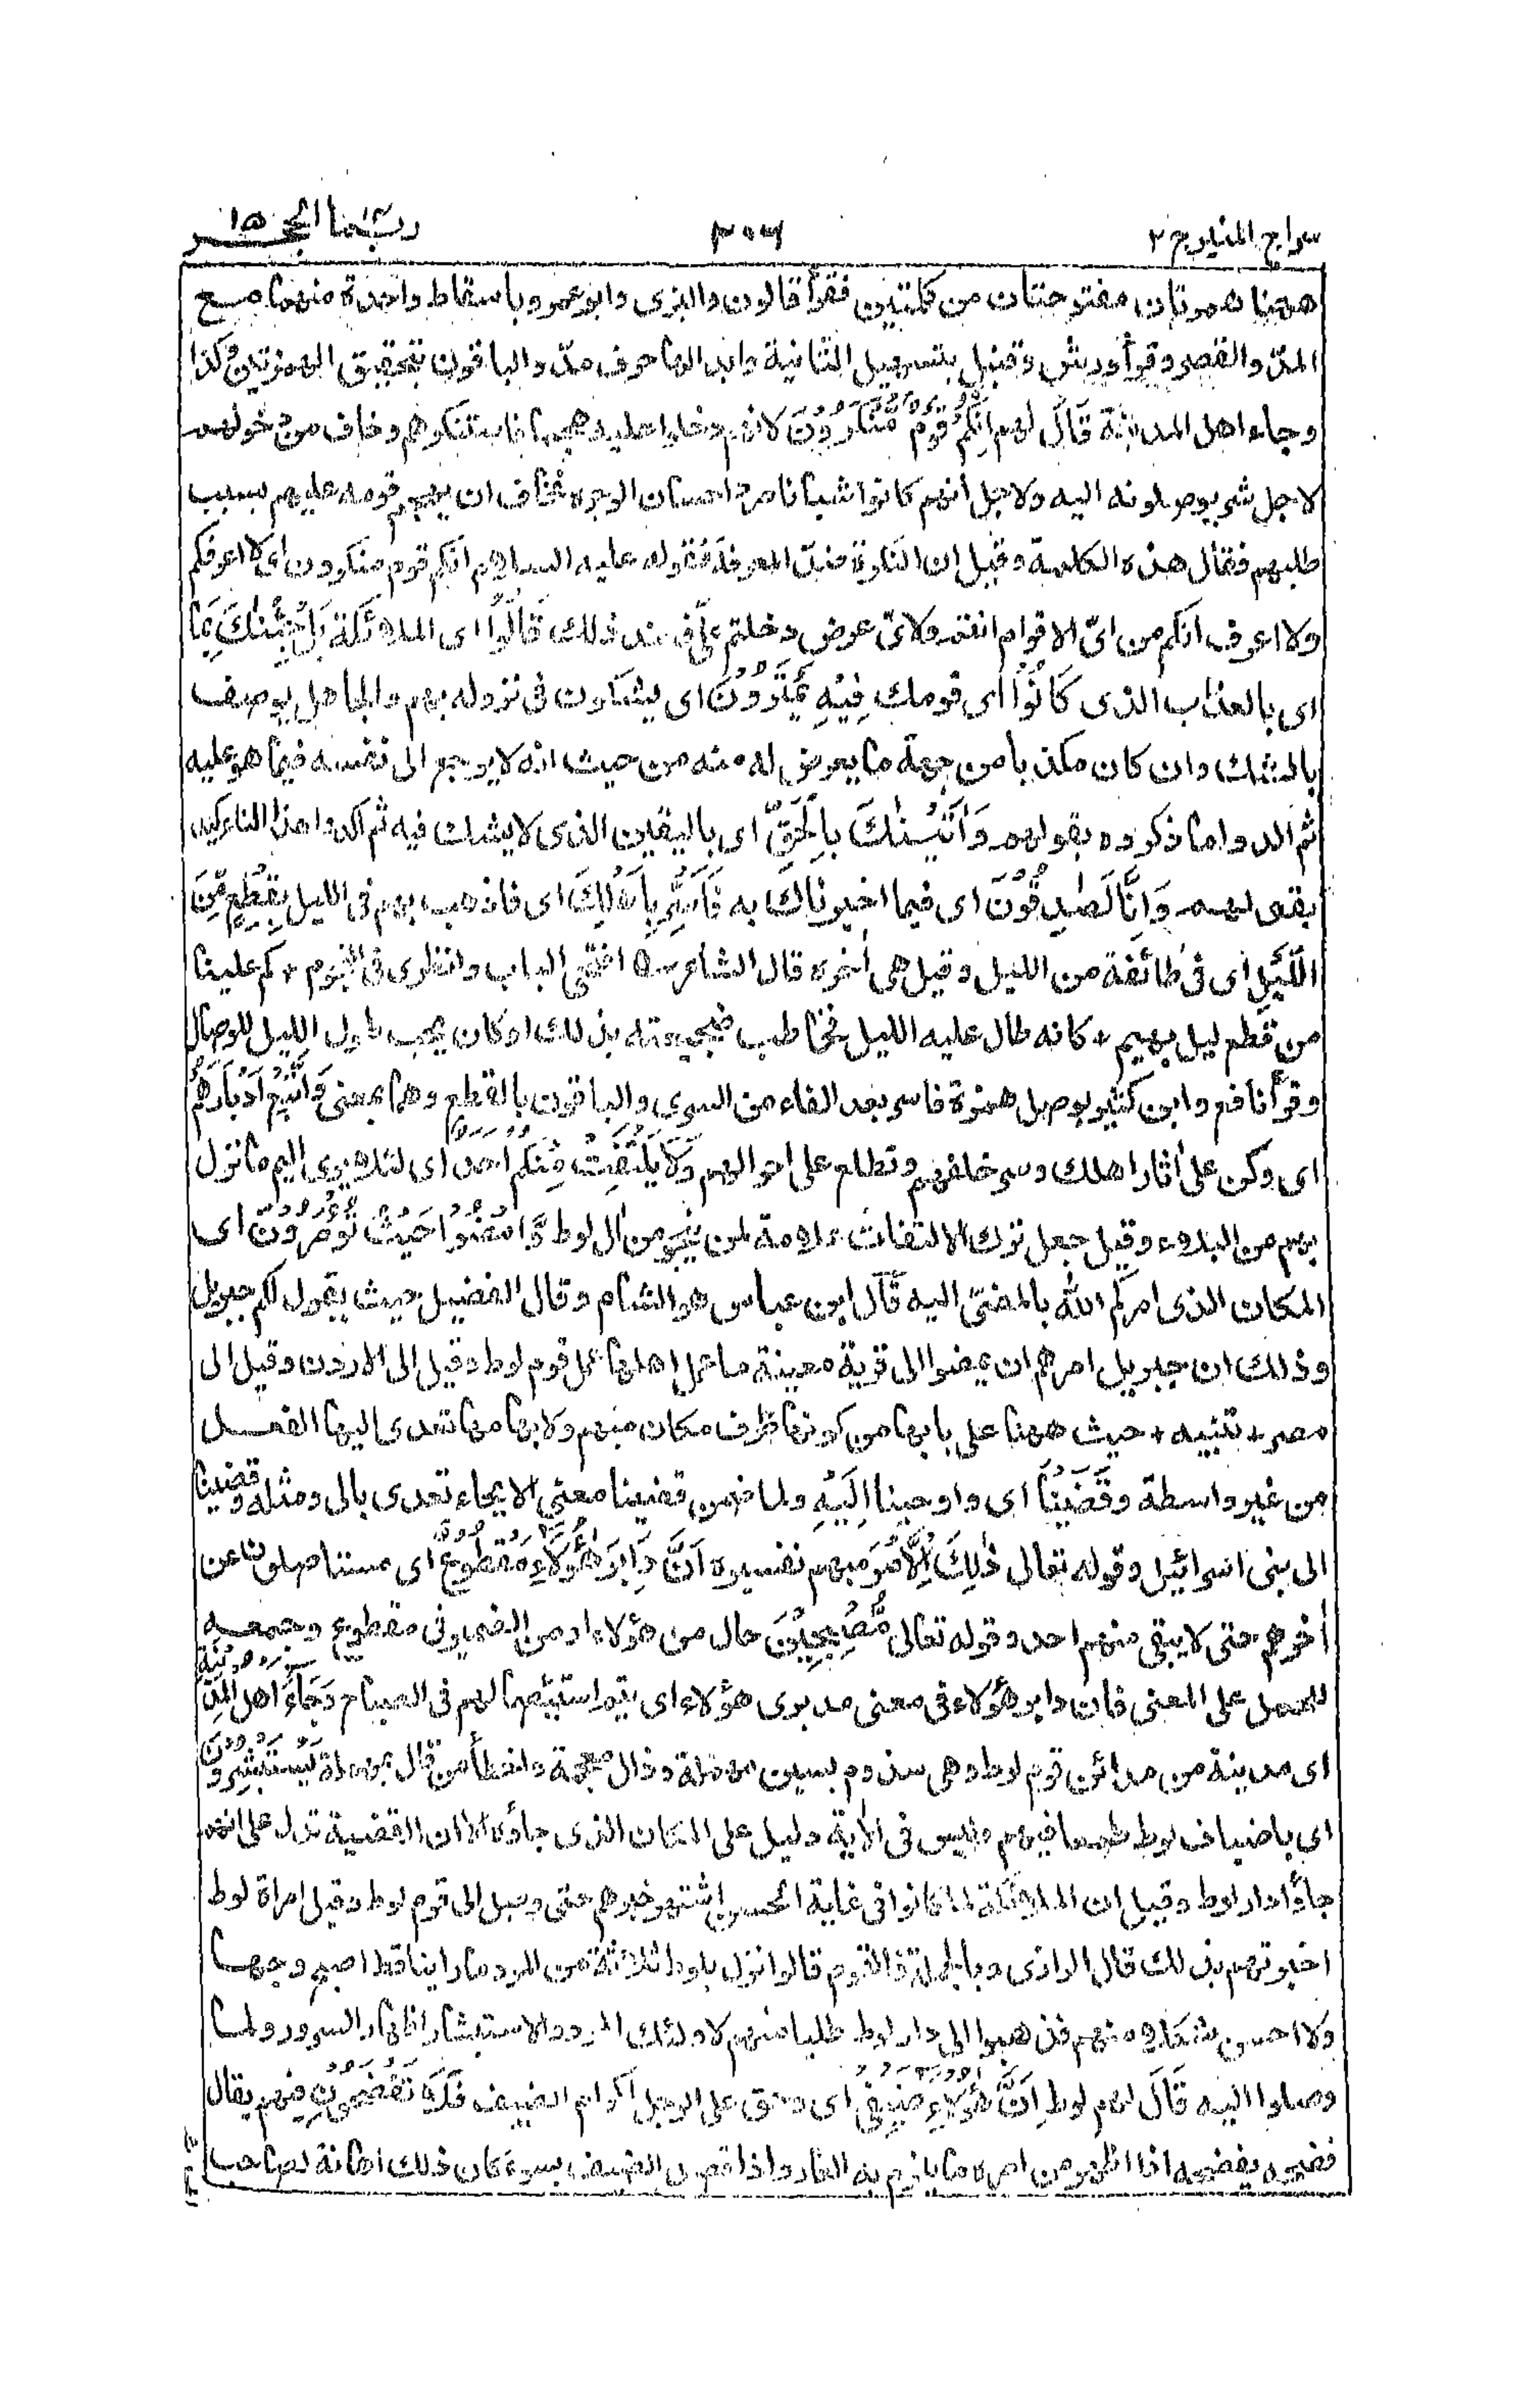 سراج المنير ج ٢
٣٠٦
ربما الحجر ١٥
ههنا همزتان مفتوحتان من كلمتين فقرأ قالون والبزى وابوعمرو باسقاط واحدة منهما مع
المدّ والقصر وقرأ ورش وقنبل بتسهيل الثانية وابدالها حرف مدّ والباقون بتحقيق الهمزتين وكذا
وجاء اهل المدينة قَالَ لهم اِنَّكُمْ قَوْمٌ مُّنْكَرُوْنَ لانهم دخلوا عليه هجما فاستنكرهم وخاف من دخولهم
لاجل شر يوصلونه اليه ولاجل انهم كانوا شبانا مردا حسان الوجوه فخاف ان يهجم قومه عليهم بسبب
طلبهم فقال هذه الكلمة وقيل ان النكرة ضدّ المعرفة فقوله عليه السلام انكم قوم منكرون اى لا اعرفكم
ولا اعرف انكم من اىّ الاقوام انتم ولاىّ غرض دخلتم علىّ فعند ذلك قَالُوْا اى الملائكة بَلْ جِئْنٰكَ بِمَا
اى بالعذاب الذى كَانُوْا اى قومك فِيْهِ يَمْتَرُوْنَ اى يشكون فى نزوله بهم والجاهل يوصف
بالشك وان كان مكذبا من جهة ما يعرض له منه من حيث انه لا يرجع الى نفسه فيما هو عليه
ثم اكدوا ما ذكروه بقولهم وَاَتَيْنٰكَ بِالْحَقِّ اى باليقين الذى لا يشك فيه ثم اكدوا هذا التاكيد
بقولهم وَاِنَّا لَصٰدِقُوْنَ اى فيما اخبرناك به فَاَسْرِ بِاَهْلِكَ اى فاذهب بهم فى الليل بِقِطْعٍ مِّنَ
الَّيْلِ اى فى طائفة من الليل وقيل هى اٰخره قال الشاعر افتحى الباب وانظرى فى النجوم + كم علينا
من قطع ليل بهيم + كانه طال عليه الليل فخاطب ضجيعته بذلك او كان يحب طول الليل للوصال
وقرأ نافع وابن كثير بوصل همزة فاسر بعد الفاء من السرى والباقون بالقطع وهما بمعنى وَاتَّبِعْ اَدْبَارَهُمْ
اى وكن على اٰثار اهلك وسر خلفهم وتطلع على احوالهم وَلَا يَلْتَفِتْ مِنْكُمْ اَحَدٌ اى لئلا يرى اليم ما نزل
بهم من البلاء وقيل جعل ترك الالتفات علامة لمن ينجو من اٰل لوط وَّامْضُوْا حَيْثُ تُؤْمَرُوْنَ اى
المكان الذى امركم الله بالمضىّ اليه قال ابن عباس هو الشام وقال الفضيل حيث يقول لكم جبريل
وذلك ان جبريل امرهم ان يمضوا الى قرية معينة ما عمل اهلها عمل قوم لوط وقيل الى الاردن وقيل الى
مصر + تنبيه + حيث ههنا على بابها من كونها ظرف مكان مبهم ولابهامها تعدى اليها الفعل
من غير واسطة وَقَضَيْنَا اى واوحينا اِلَيْهِ ولما ضمن قضينا معنى الايحاء تعدى بالى ومثله وقضينا
الى بنى اسرائيل وقوله تعالى ذٰلِكَ الْاَمْرَ مبهم تفسيره اَنَّ دَابِرَ هٰٓؤُلَآءِ مَقْطُوْعٌ اى مستاصلون عن
اٰخرهم حتى لا يبقى منهم احد وقوله تعالى مُّصْبِحِيْنَ حال من هؤلاء او من الضمير فى مقطوع وجمعه
للحمل على المعنى فان دابر هؤلاء فى معنى مدبرى هؤلاء اى يتم استئصالهم فى الصباح وَجَآءَ اَهْلُ الْمَدِيْنَةِ
اى مدينة من مدائن قوم لوط وهى سذوم بسين مهملة وذال معجمة واخطأ من قال بمهملة يَسْتَبْشِرُوْنَ
اى باضياف لوط طمعا فيهم وليس فى الاٰية دليل على المكان الذى جاؤه الا ان القضية تدل على انهم
جاؤا دار لوط وقيل ان الملائكة لما كانوا فى غاية الحسن اشتهر خبرهم حتى وصل الى قوم لوط وقيل امراة لوط
اخبرتهم بذلك قال الرازى وبالجملة فالقوم قالوا نزل بلوط ثلاثة من المرد ما راينا قط اصبح وجها
ولا احسن شكلا منهم فذهبوا الى دار لوط طلبا منهم لاولئك المرد والاستبشار اظهار السرور ولما
وصلوا اليه قَالَ لهم لوط اِنَّ هٰٓؤُلَآءِ ضَيْفِىْ اى وحق على الرجل اكرام الضيف فَلَا تَفْضَحُوْنِ فيهم يقال
فضحه يفضحه اذا اظهر من امره ما يلزم به العار واذا قصد الضيف بسوء كان ذلك اهانة لصاحب